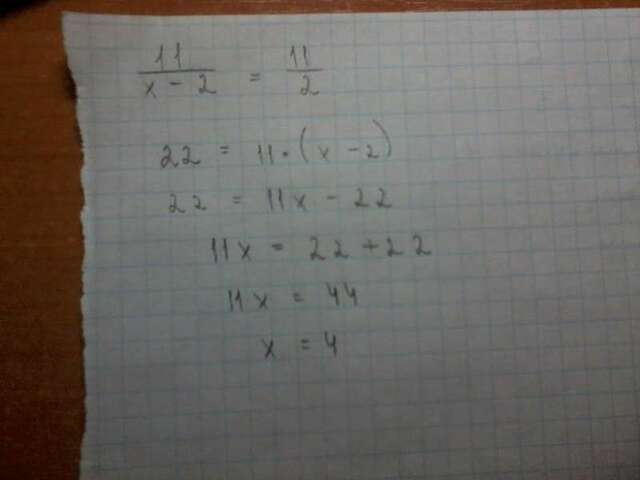 11/(x - 2) = 11/2
22 = 11 · (x - 2)
22 = 11x - 22
11x = 22 + 22
11x = 44
x = 4